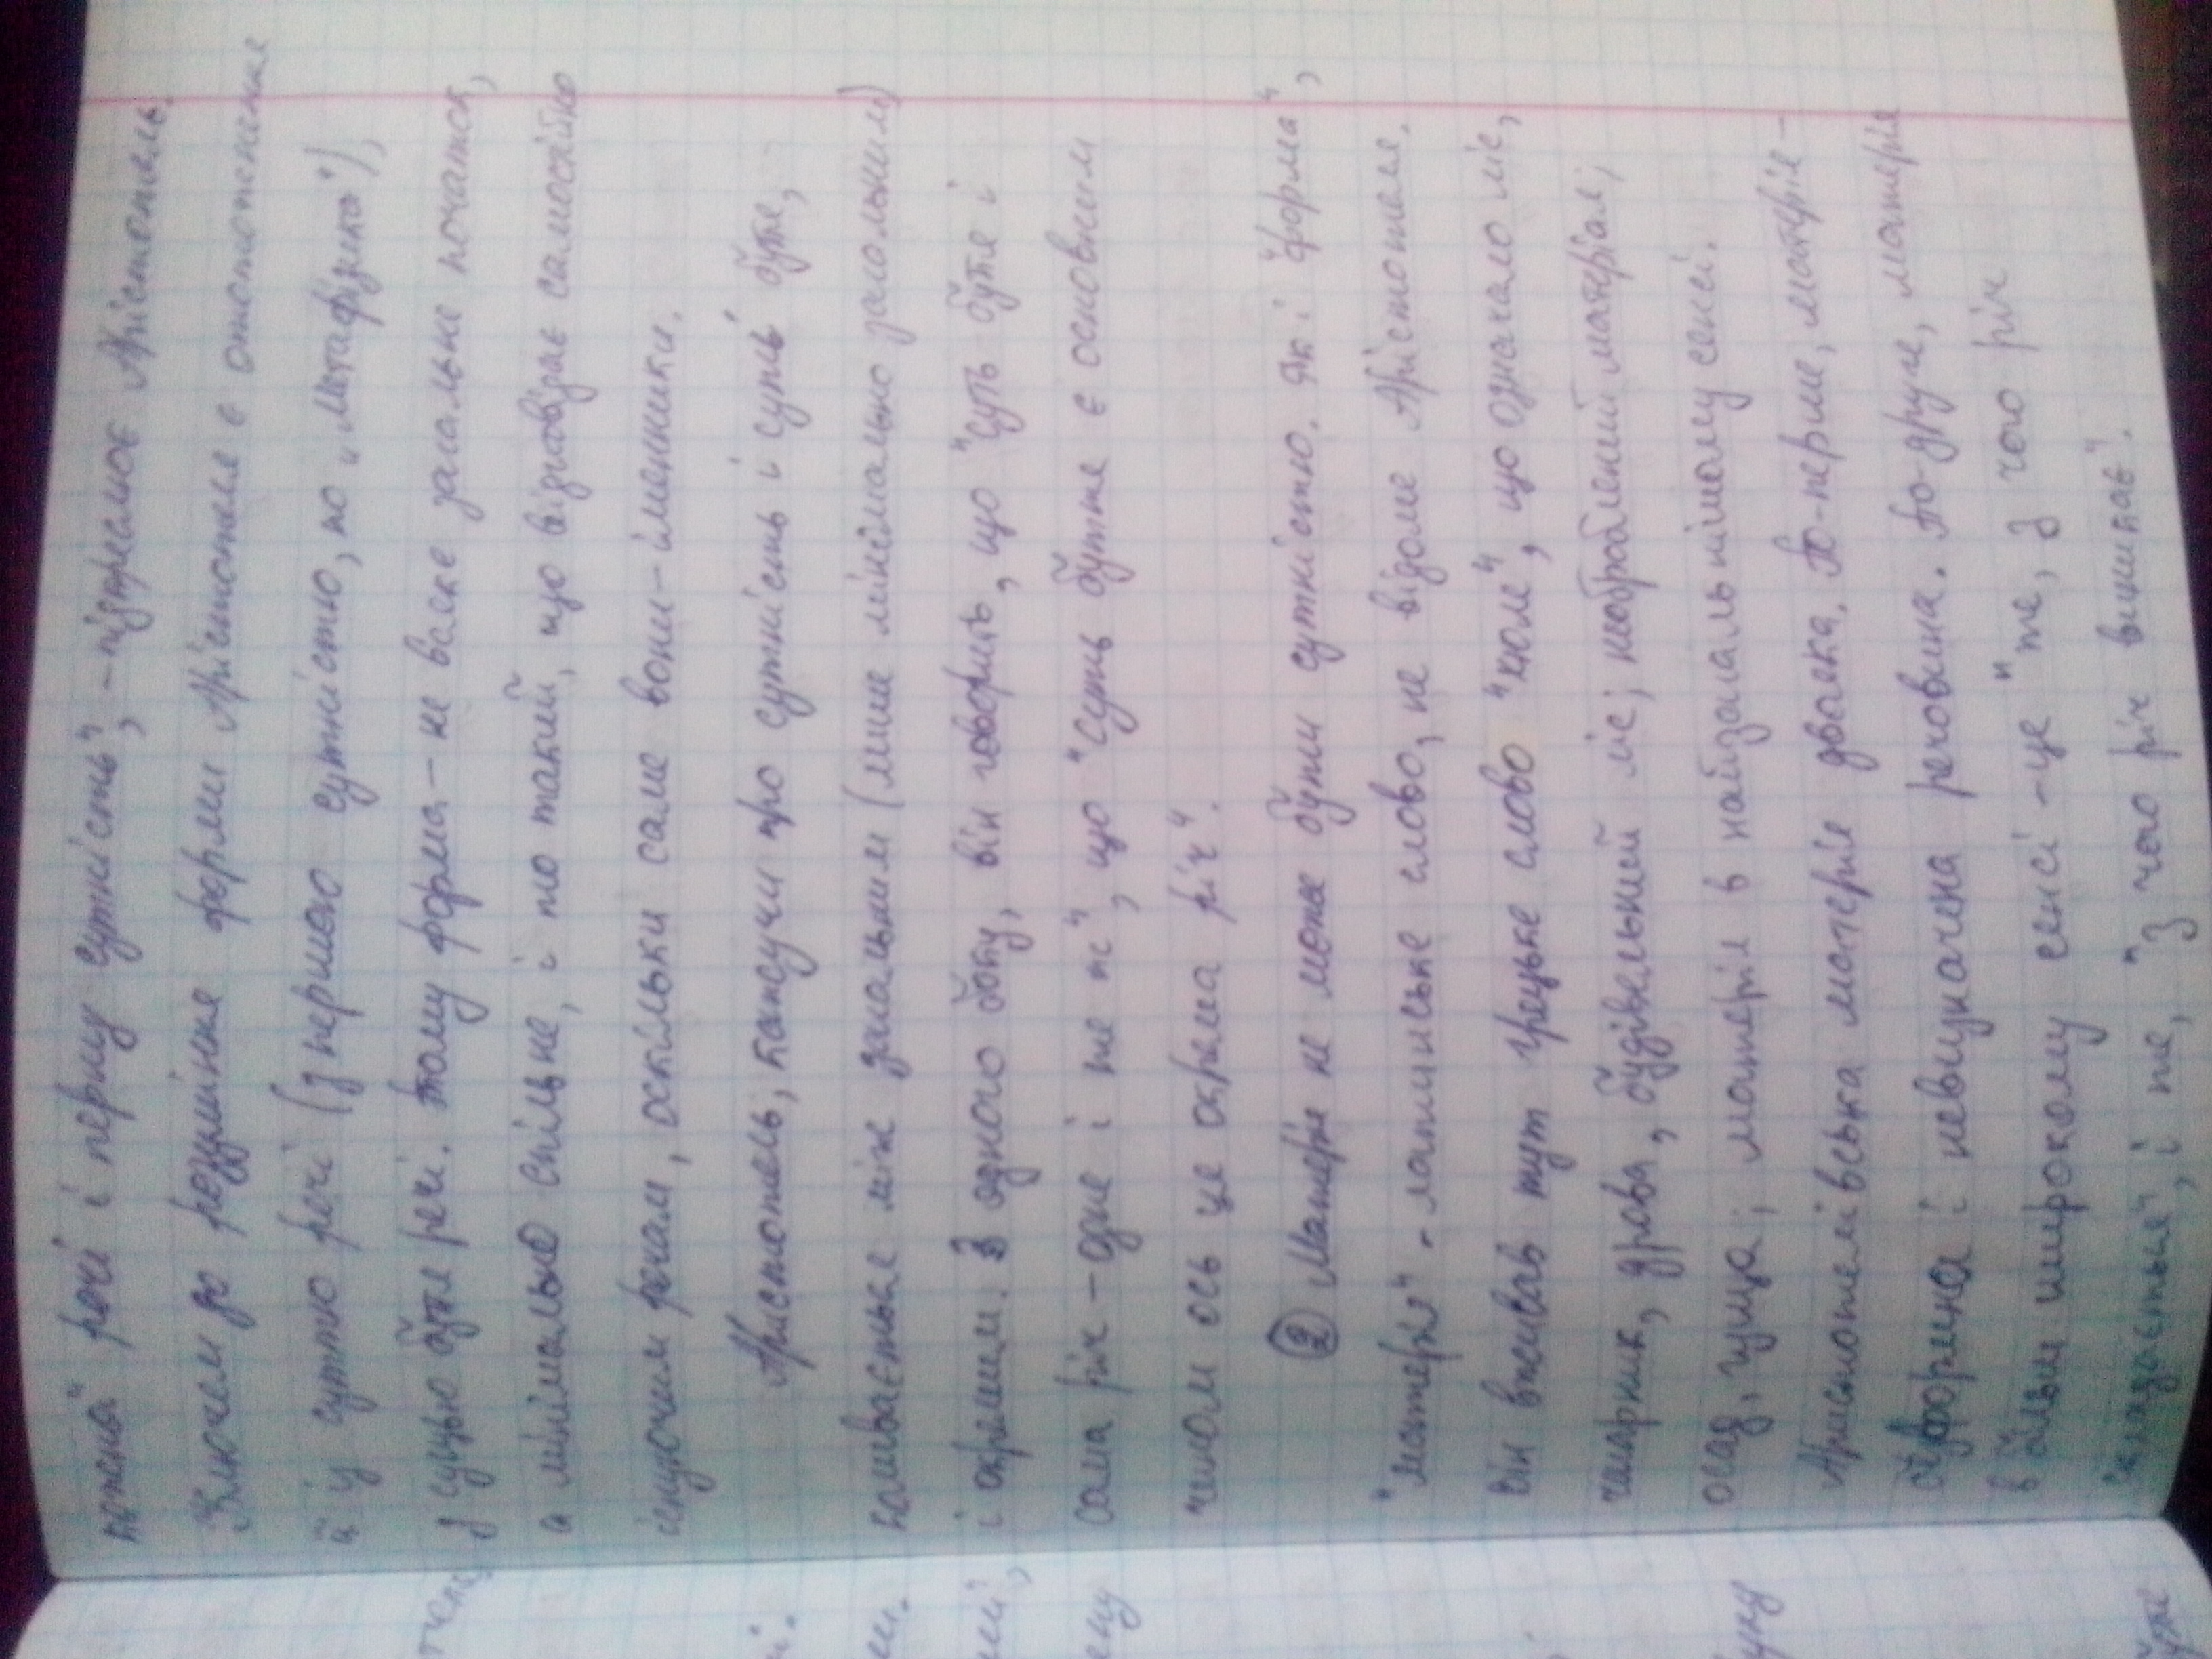 кожної речі і першу сутність", - підкреслює Арістотель.
Ключем до розуміння форми Арістотеля є ототожнення
її у суттю речі (з першою сутністю, по „Метафізика"),
з суттю буття речі. Тому форма - не всяке загальне початок,
а мінімально спільне, і то такий, що відповідає самостійно
існуючим речам, оскільки саме вони - іменники.
Арістотель, кажучи про сутність і суть буття,
коливається між загальним (лише мінімально загальним)
і окремим. З одного боку, він говорить, що "суть буття і
сама річ - одне і те ж", що "суть буття є основним
чином ось це окрема річ".
② Матерія не може бути сутністю. Як і "форма",
"матерія" - латинське слово, не відоме Арістотеля.
Він вживав тут грецьке слово "хюле", що означало ліс,
чагарник, дрова, будівельний ліс; необроблений матеріал;
осад, гуща; матерія в найзагальнішому сенсі.
Аристотелівська матерія двояка. По-перше, матерія -
безформна і невизначена речовина. По-друге, матерія
в більш широкому сенсі - це "те, з чого річ
складається", і те, "з чого річ виникає".